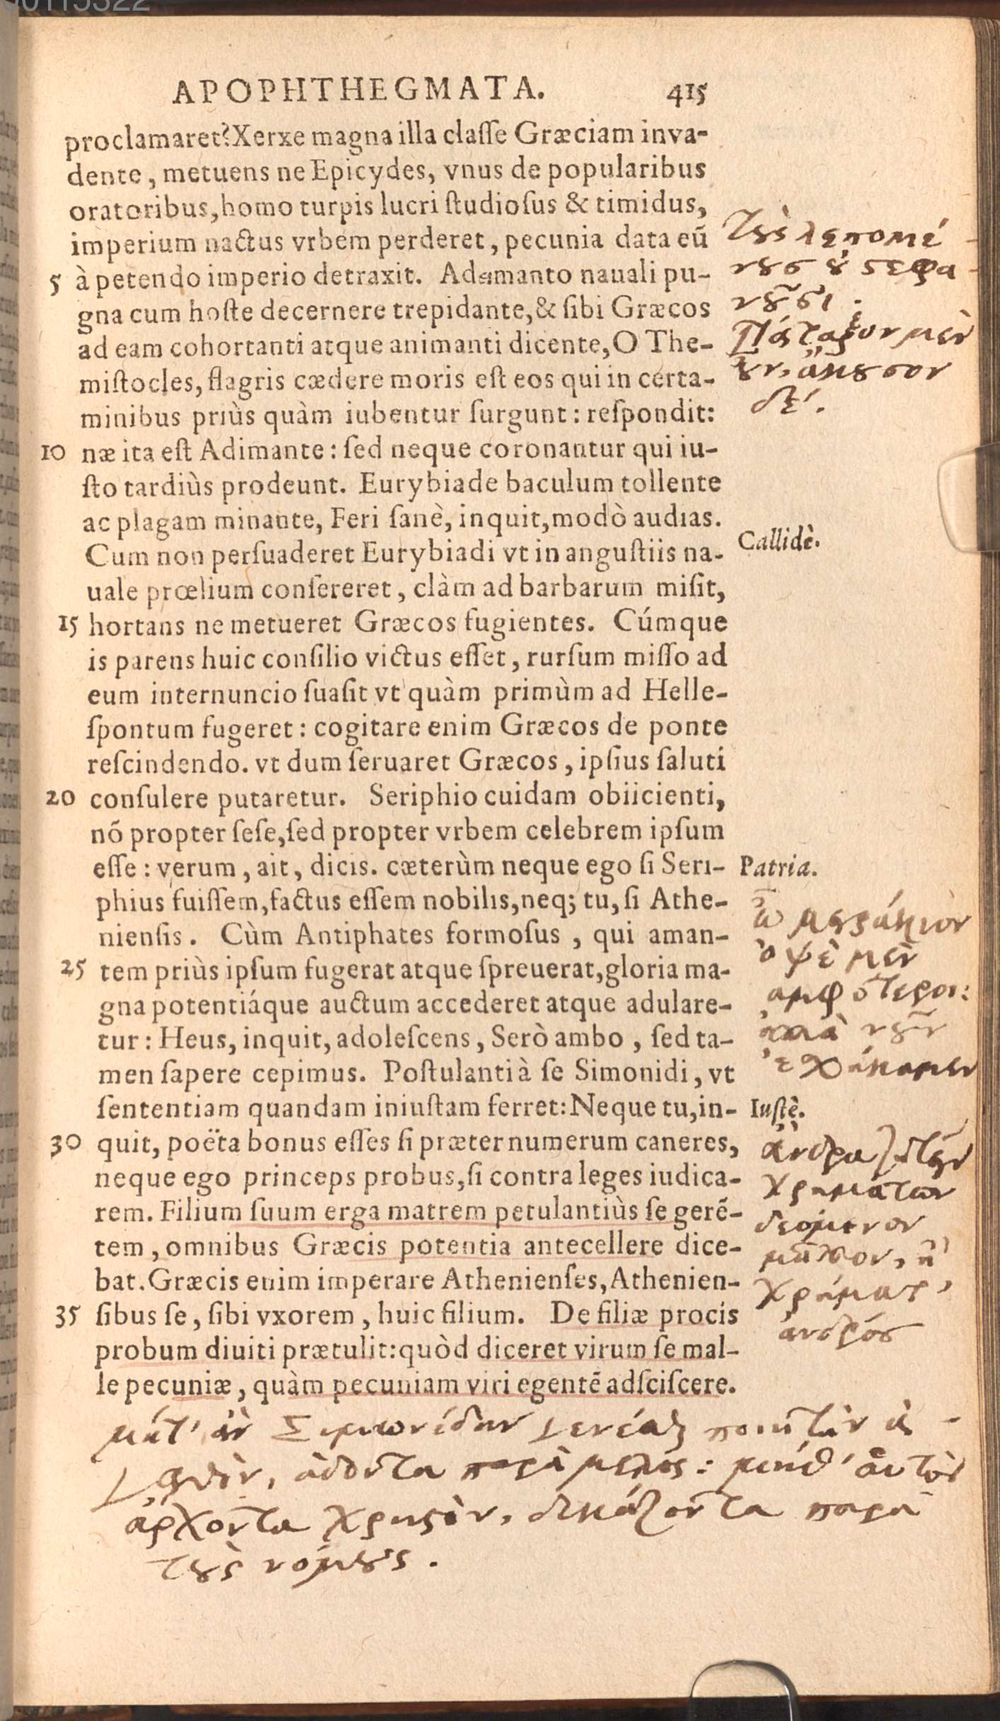 APOPHTHEGMATA. 415
proclamaret? Xerxe magna illa claſſe Græciam inva-
dente, metuens ne Epicydes, vnus de popularibus
oratoribus, homo turpis lucri ſtudioſus & timidus,
imperium nactus vrbem perderet, pecunia data eũ
5 à petendo imperio detraxit. Adamanto nauali pu-
gna cum hoſte decernere trepidante, & ſibi Græcos
ad eam cohortanti atque animanti dicente, O The-
miſtocles, flagris cædere moris eſt eos qui in certa-
minibus priùs quàm iubentur ſurgunt: reſpondit:
10 næ ita eſt Adimante: ſed neque coronantur qui iu-
ſto tardiùs prodeunt. Eurybiade baculum tollente
ac plagam minante, Feri ſanè, inquit, modò audias.
Cum non perſuaderet Eurybiadi vt in anguſtiis na-
uale prœlium conſereret, clàm ad barbarum miſit,
15 hortans ne metueret Græcos fugientes. Cúmque
is parens huic conſilio victus eſſet, rurſum miſſo ad
eum internuncio ſuaſit vt quàm primùm ad Helle-
ſpontum fugeret: cogitare enim Græcos de ponte
reſcindendo. vt dum ſeruaret Græcos, ipſius ſaluti
20 conſulere putaretur. Seriphio cuidam obiicienti,
nõ propter ſeſe, ſed propter vrbem celebrem ipſum
eſſe: verum, ait, dicis. cæterùm neque ego ſi Seri-
phius fuiſſem, factus eſſem nobilis, neq; tu, ſi Athe-
nienſis. Cùm Antiphates formoſus, qui aman-
25 tem priùs ipſum fugerat atque ſpreuerat, gloria ma-
gna potentiáque auctum accederet atque adulare-
tur: Heus, inquit, adoleſcens, Serò ambo, ſed ta-
men ſapere cepimus. Poſtulanti à ſe Simonidi, vt
ſententiam quandam iniuſtam ferret: Neque tu, in-
30 quit, poëta bonus eſſes ſi præter numerum caneres,
neque ego princeps probus, ſi contra leges iudica-
rem. Filium ſuum erga matrem petulantiùs ſe gerẽ-
tem, omnibus Græcis potentia antecellere dice-
bat. Græcis enim imperare Athenienſes, Athenien-
35 ſibus ſe, ſibi vxorem, huic filium. De filiæ procis
probum diuiti prætulit: quòd diceret virum ſe mal-
le pecuniæ, quàm pecuniam viri egentẽ adſciſcere.
τȣ̀ς λειπομέ
νȣσ ȣ̓ στεφα-
νȣ͂σι.
Πάταξον μὲν
ȣν, ἄκȣσον
δέ.
Callidè.
Patria.
ὦ μειράκιον
ὀψὲ μὲν
ἀμφότεροι:
ἀλλὰ νȣ͂ν
Iuſtè.
ἄνδρα ζητεῖν
χρημάτων
δεόμενον
μᾶλλον, ἢ
χρήματ'
ἀνδρός
μήτ' ἂν Σιμωνίδην γενέσθαι ποιητὴν ἀ-
γαθὸν, ᾄδοντα παρὰ μέλος: μήθ' αὐτὸν
ἄρχοντα χρηστὸν, δικάζοντα παρὰ
τȣ̀ς νόμȣς.